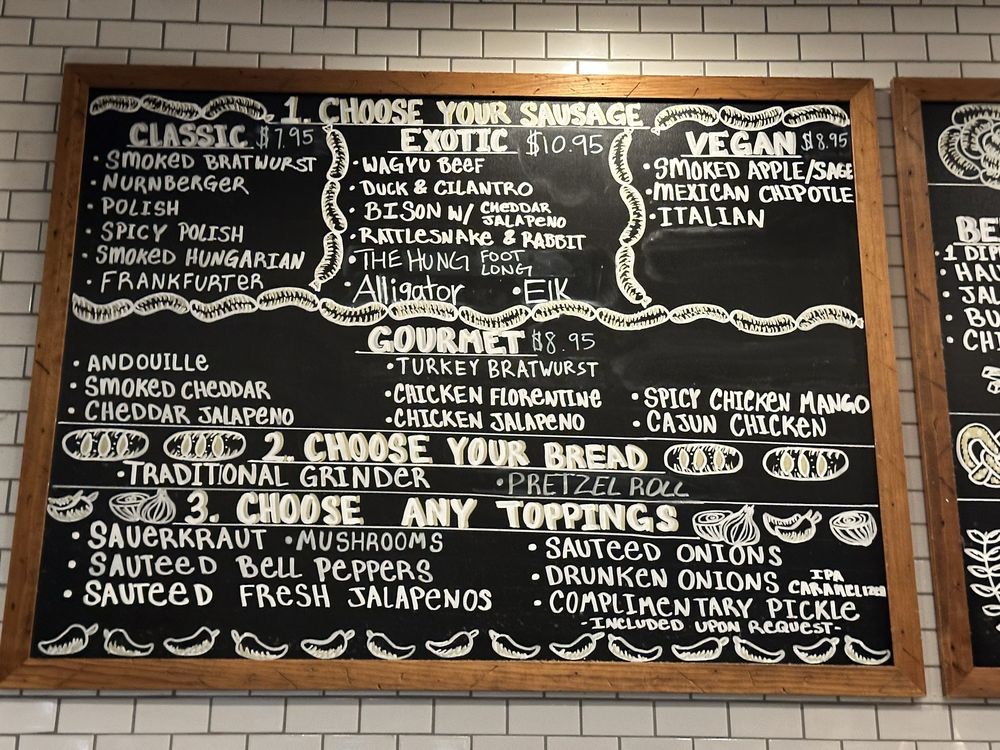 1. CHOOSE YOUR SAUSAGE
CLASSIC $7.95
• SMOKED BRATWURST
• NURNBERGER
• POLISH
• SPICY POLISH
• SMOKED HUNGARIAN
• FRANKFURTER
EXOTIC $10.95
• WAGYU BEEF
• DUCK & CILANTRO
• BISON W/ CHEDDAR JALAPENO
• RATTLESNAKE & RABBIT
• THE HUNG FOOT LONG
• Alligator • Elk
VEGAN $8.95
• SMOKED APPLE/SAGE
• MEXICAN CHIPOTLE
• ITALIAN
GOURMET $8.95
• ANDOUILLE
• SMOKED CHEDDAR
• CHEDDAR JALAPENO
• TURKEY BRATWURST
• CHICKEN FLORENTINE
• CHICKEN JALAPENO
• SPICY CHICKEN MANGO
• CAJUN CHICKEN
2. CHOOSE YOUR BREAD
• TRADITIONAL GRINDER • PRETZEL ROLL
3. CHOOSE ANY TOPPINGS
• SAUERKRAUT • MUSHROOMS
• SAUTEED BELL PEPPERS
• SAUTEED FRESH JALAPENOS
• SAUTEED ONIONS
• DRUNKEN ONIONS IPA CARAMELIZED
• COMPLIMENTARY PICKLE
- INCLUDED UPON REQUEST -
• 1 DIP